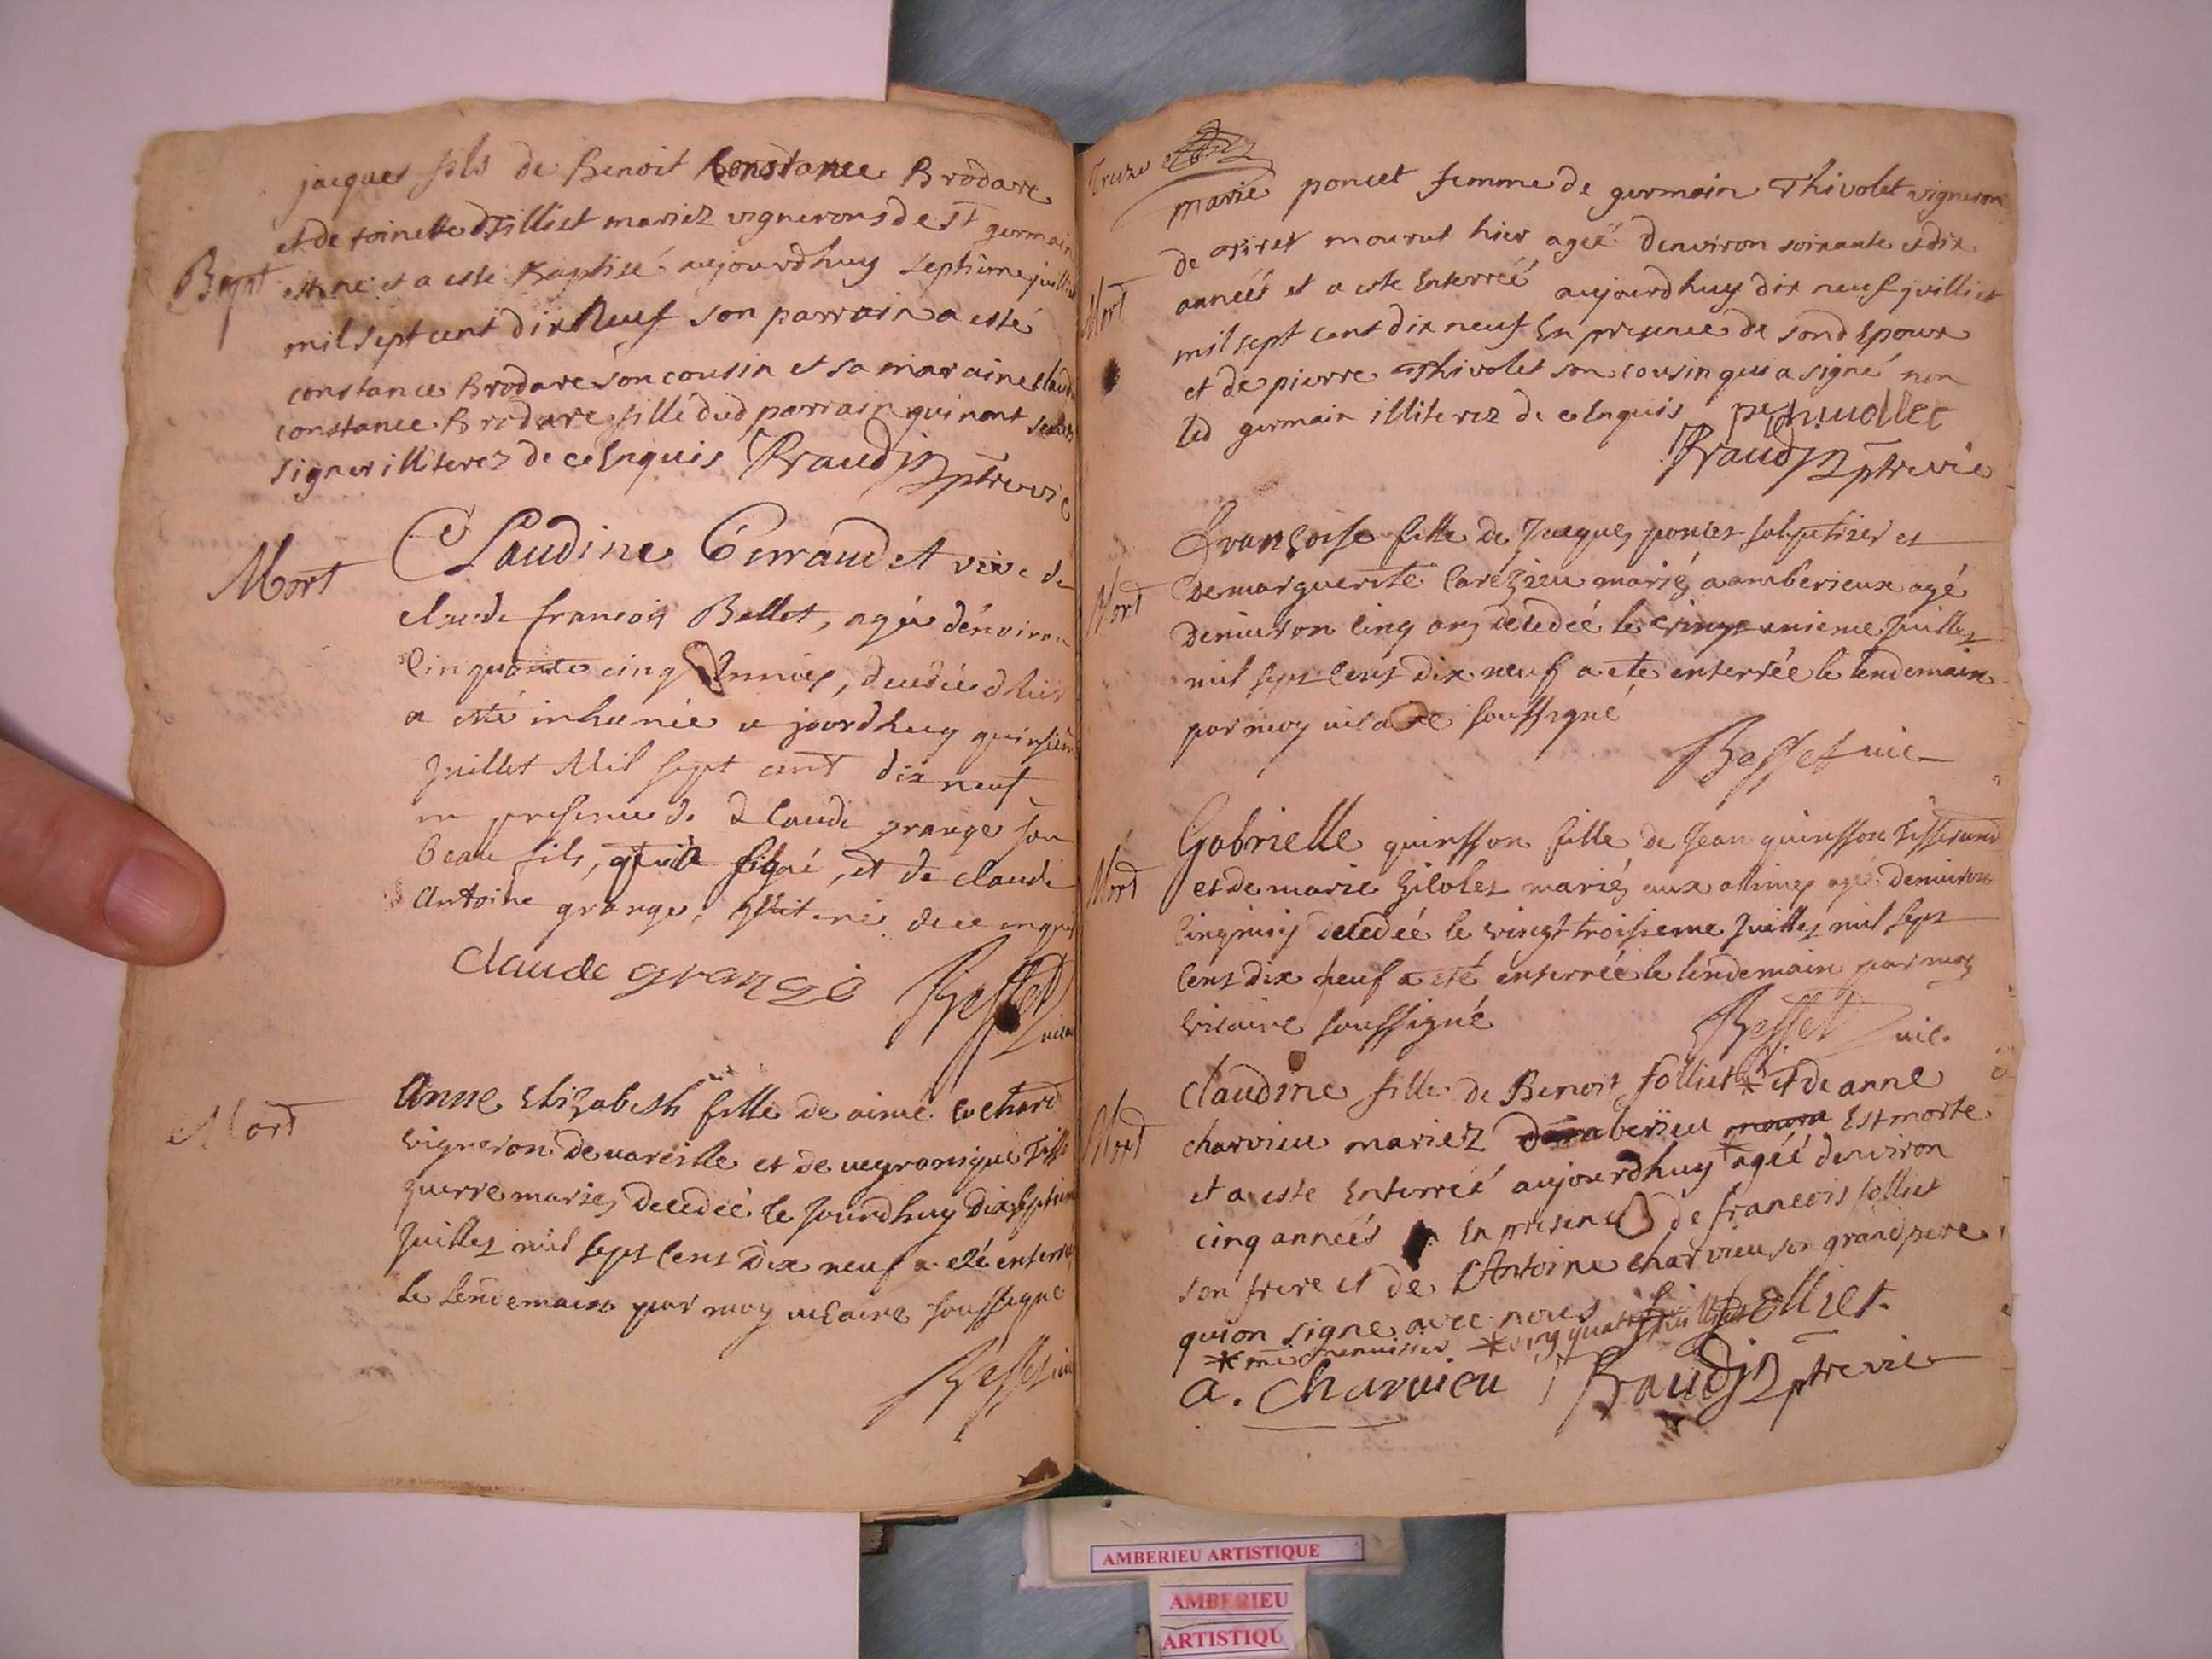 jacques fils de Benoit Constance Brodare
et de toinette Tilliet mariez vignerons de St germain
Bapt
est né et a esté Baptisé aujourdhuy septieme juilliet
mil sept cent dix Neuf son parrain a esté
constance Brodare son cousin et sa maraine
constance Brodare fille dud parrain qui nont
signer illiterez de ce Enquis Baudin ptre vic
Mort
Claudine veve de
claude francois Bellet, agée dénviron
Cinquante cinq Années, decedée dhier
a esté inhumée a jourdhuy quinsieme
Juillet Mil sept cent dix neuf
en presence de Claude grange son
beau fils, qui a signé, et de claude
Antoine grange, illiteré de ce enquis
Claude grange
Besset
Mort
Anne Elizabeth fille de aimé
vigneron de vareille et de
mariez decedée le Jourdhuy Dix septieme
Juillet mil sept Cent Dix neuf a eté enterré
le lendemain par moy vicaire soussigné
Besset
Treize
marie poncet femme de germain Thivolet vigneron
de mourut hier ageé denviron soixante et dix
Mort
anneés et a este Enterreé aujourdhuy dix neuf juilliet
mil sept cent dix neuf En presence de sond Epoux
et de pierre Thivolet son cousin qui a signé non
led germain illiterez de ce Enquis pe thiuollet
Baudin ptre vic
Françoise fille de Jacques poncet et
Mort
De marguerite mariéz a amberieux agé
Denviron Cinq ans decedeé le unieme Juillet
mil sept Cent Dix neuf a eté enterrée le lendemain
par moy vicaire soussigné
Besset vic
Gabrielle quinsson fille de Jean quinsson Tisserand
Mort
et de marie mariéz aux allimes agé denviron
decedeé le vingt troisieme Juillet mil sept
Cent dix neuf a eté enterreé le lendemain par moy
vicaire soussigné
Besset vic.
Claudine fille de Benoit folliet * et de anne
Mort
charvieu mariez damberieu Est morte
et a este Enterreé aujourdhuy * ageé denviron
cinq anneés En presence de francois folliet
son frere et de Antoine charvieu son grand pere
qui on signe avec nous folliet.
* me menuisier * vingt quatre juilliet
a. Charuieu Baudin ptre vic
AMBERIEU ARTISTIQUE
AMBERIEU
ARTISTIQU